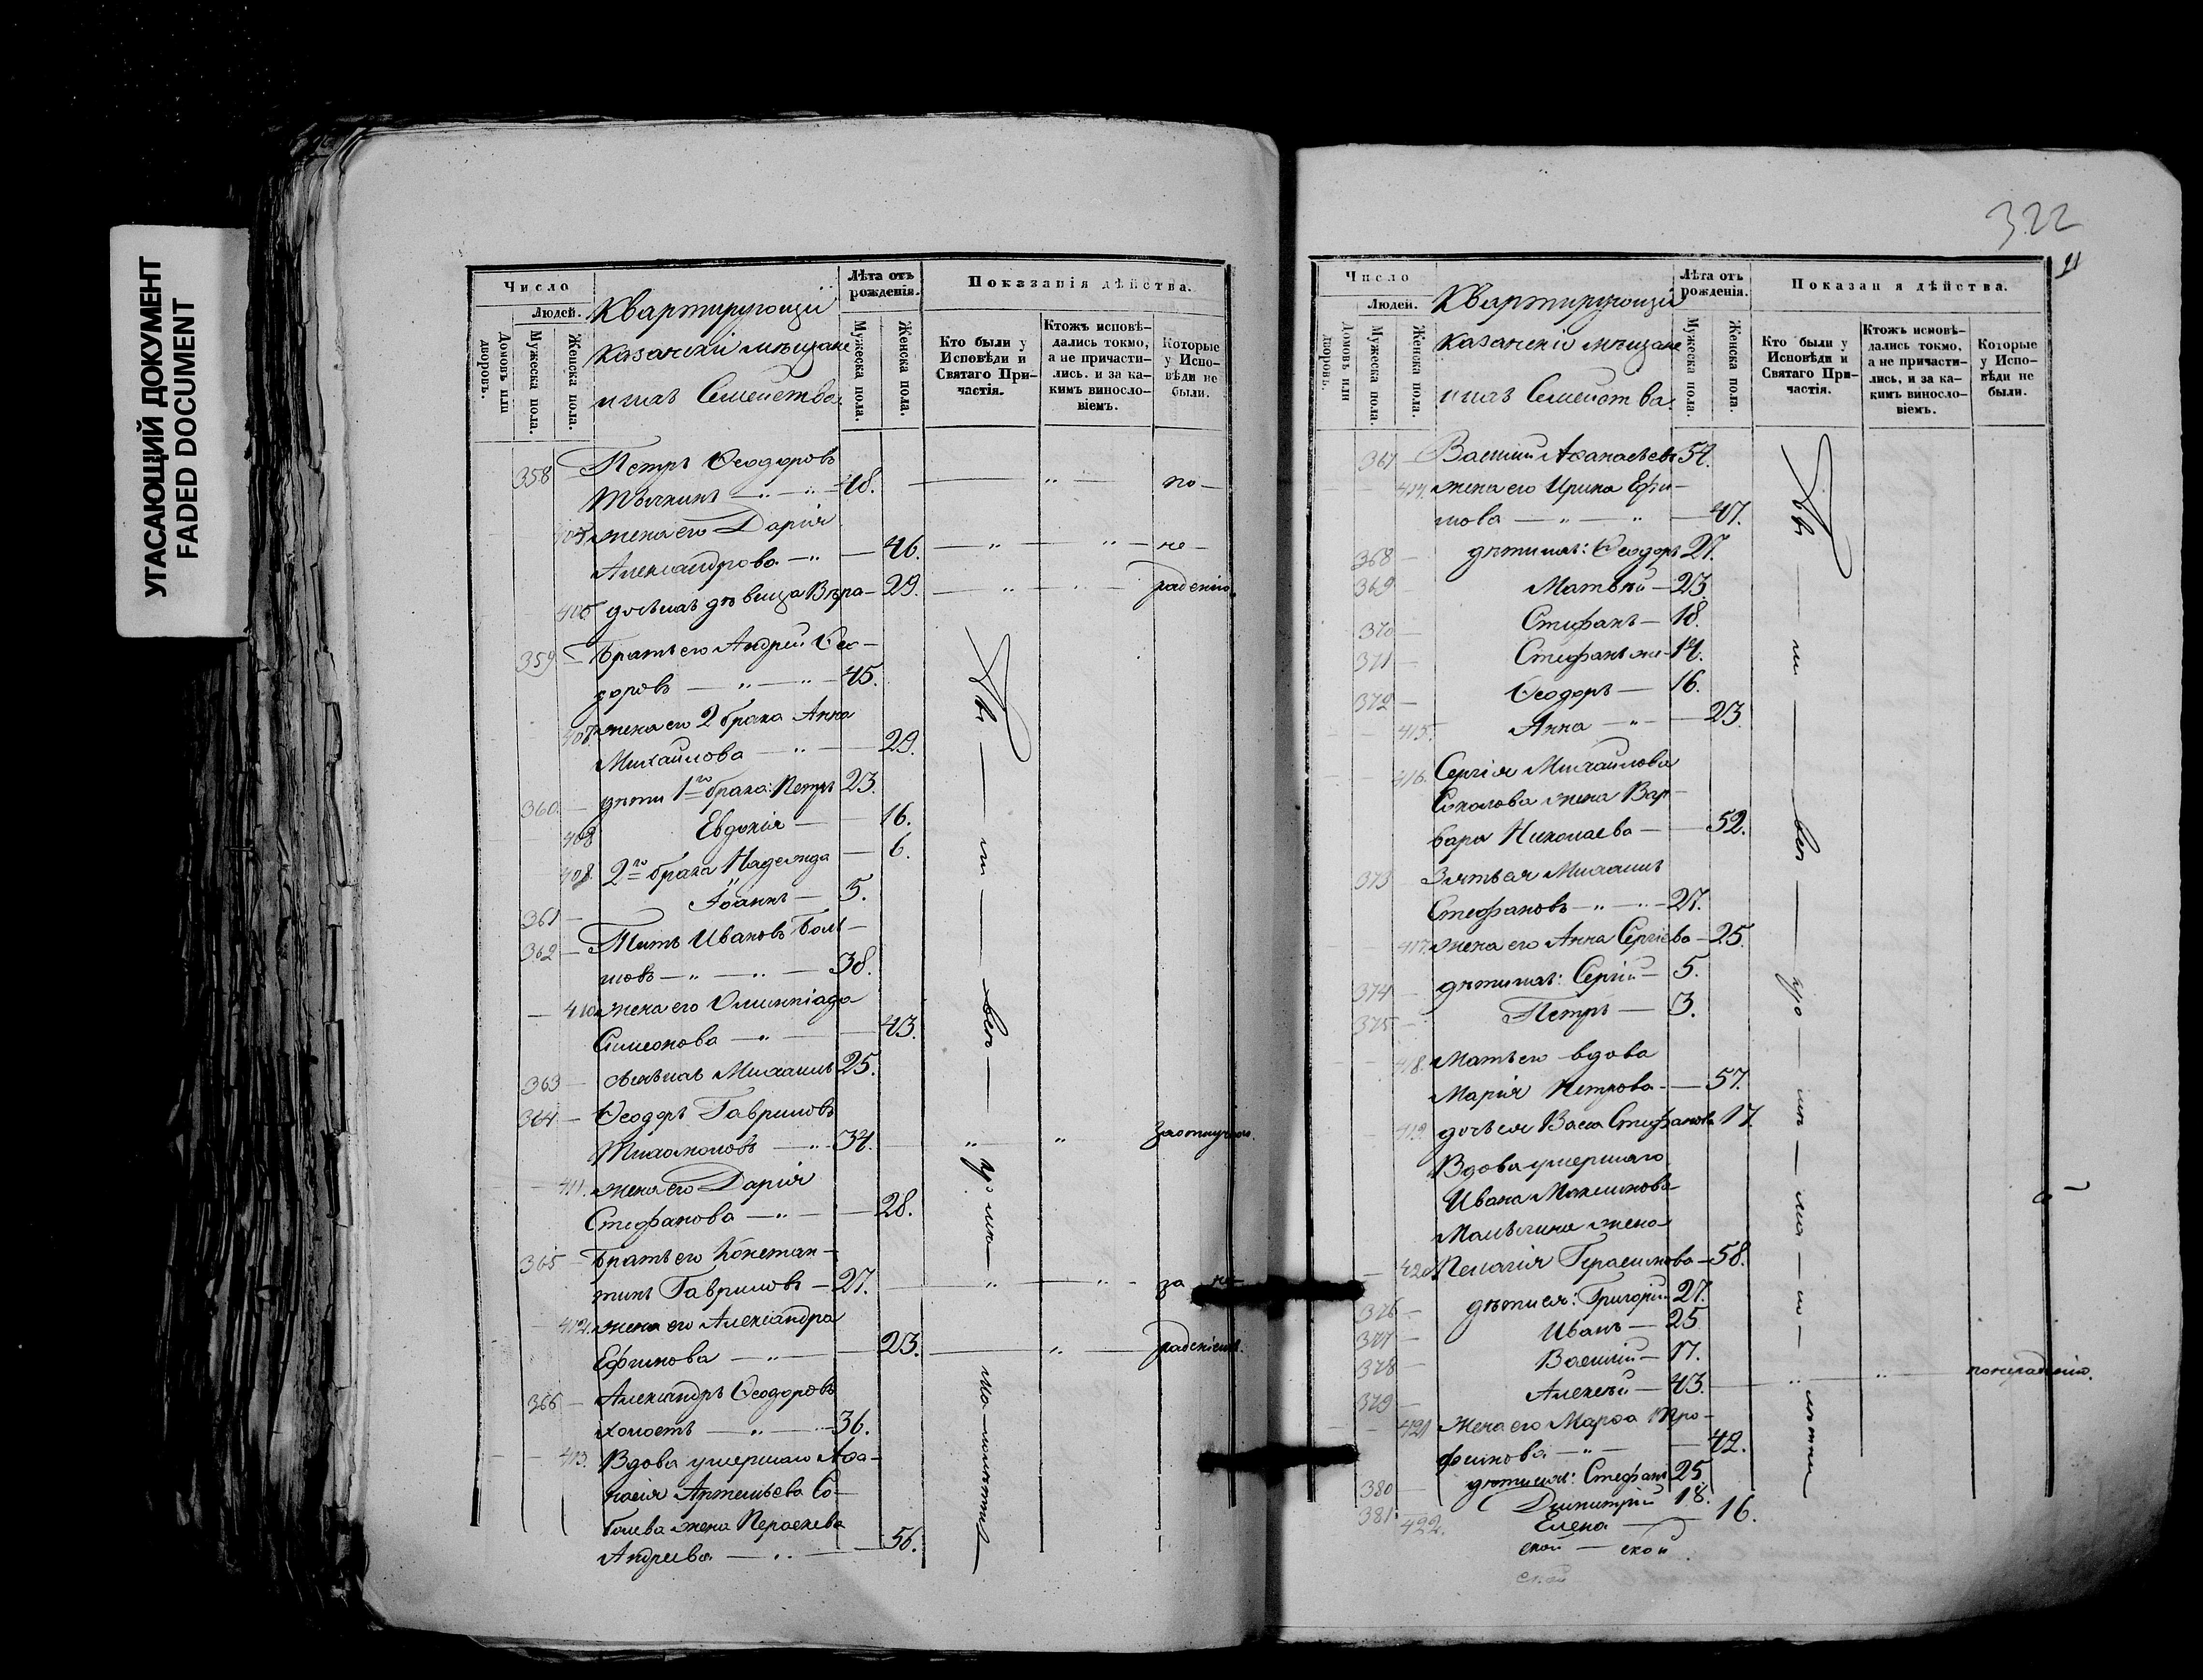 УГАСАЮЩИЙ ДОКУМЕНТ
FADED DOCUMENT
Число
Людей.
Домовъ или дворовъ.
Мужеска пола.
Женска пола.
Квартирующіи
казанскіи мѣщане
и ихъ Семейства
Лѣта отъ рожденія.
Мужеска пола.
Женска пола.
Показанія дѣйства.
Кто были у Исповѣди и Святаго Причастія.
Ктожъ исповѣдались токмо, а не причастились, и за какимъ винословіемъ.
Которые у Исповѣди не были.
358 Петръ Ѳеодоровъ
48. по
жена его Дарія
Александрова 46. не
406 дочь ихъ дѣвица Вѣра 29. радѣнію.
359 Братъ его Андрей Ѳео-
доровъ 45.
407 жена его 2 брака Анна
Михайлова 29.
360 дѣти 1го брака: Петръ 23.
408 Евдокія 16.
2го брака Надежда 6.
361 Іоаннъ 5.
362 Титъ Ивановъ
38.
410 жена его Олимпіада
Симеонова 43.
363 сынъ ихъ Михаилъ 25.
364 Ѳеодоръ Гавриловъ
34. за отлучкою.
411. жена его Дарія
Стефанова 28.
365 Братъ его Констан-
тинъ Гавриловъ 27. за не-
412. жена его Александра
Ефимова 23. радѣніемъ.
366 Александръ Ѳеодоровъ
холостъ 36.
413. Вдова умершаго Аѳа-
насія Артемьева Со-
болева жена Параскева
Андреева 56.
322
Число
Людей.
Домовъ или дворовъ.
Мужеска пола.
Женска пола.
Квартирующіи
казанскіи мѣщане
и ихъ Семейства.
Лѣта отъ рожденія.
Мужеска пола.
Женска пола.
Показан я дѣйства.
Кто были у Исповѣди и Святаго Причастія.
Ктожъ исповѣдались токмо, а не причастились, и за какимъ винословіемъ.
Которые у Исповѣди не были.
367 Василий Аѳанасьевъ 54.
414. жена его Ирина Ефи-
мова 47.
368 дѣти ихъ: Ѳеодоръ 27.
369 Матвѣй 23.
370 Стефанъ 18.
371 Стефанъ же 14.
372 Ѳеодоръ 16.
415. Анна 23.
416. Сергія Михайлова
Соколова жена Вар-
вара Николаева 52.
373 Зять ея Михаилъ
Стефановъ 27.
417. жена его Анна Сергіева 25.
374 дѣти ихъ: Сергій 5.
375 Петръ 3.
418. Мать его вдова
Марія Петрова 57.
419. дочь ея Васса Стефанова 17.
Вдова умершаго
Ивана Максимова
жена
420 Пелагія Герасимова 58.
376 дѣти ея: Григорій 27.
377 Иванъ 25
378 Василий 17.
379 Алексѣй 43. по нерадѣнію.
421 жена его Марѳа Тро-
фимова 42.
380 дѣти ихъ: Стефанъ 25
381. Димитрій 18.
422. Елена 16.
ской ской